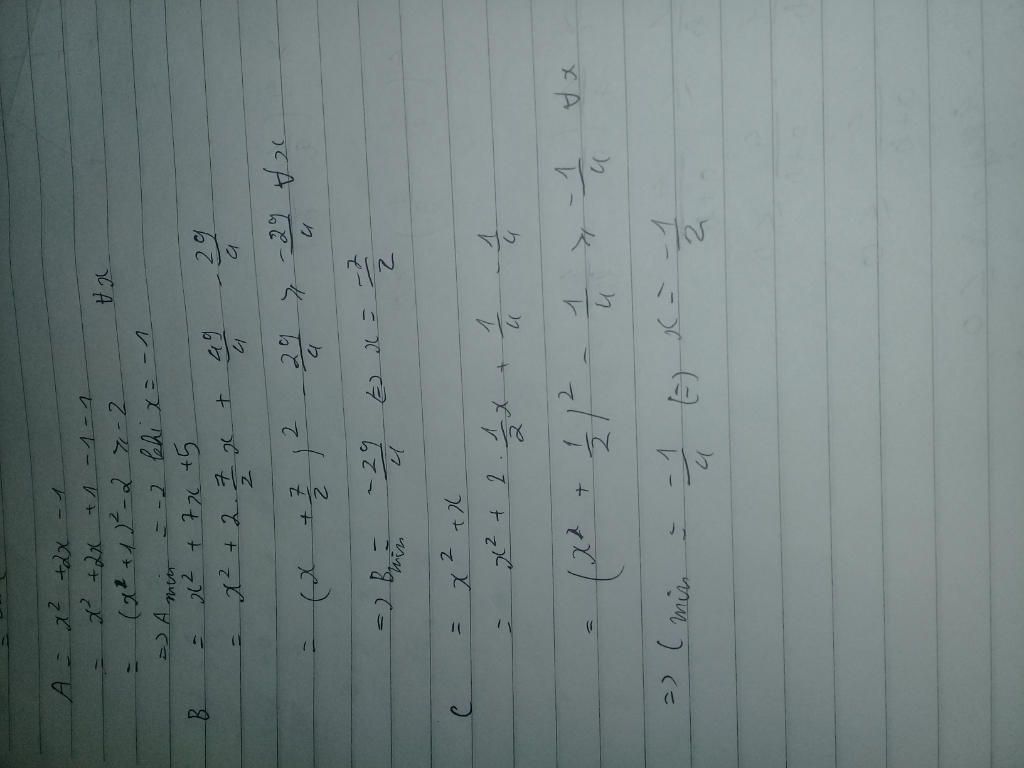 A = x² + 2x - 1
= x² + 2x + 1 - 1 - 1
= (x + 1)² - 2 ≥ - 2 ∀x
=> A min = - 2 khi x = - 1
B = x² + 7x + 5
= x² + 2 7/2 x + 49/4 - 29/4
= (x + 7/2)² - 29/4 ≥ -29/4 ∀x
=> B min = -29/4 (=) x = -7/2
C = x² + x
= x² + 2 . 1/2 x + 1/4 - 1/4
= (x + 1/2)² - 1/4 ≥ - 1/4 ∀x
=> C min = - 1/4 (=) x = - 1/2